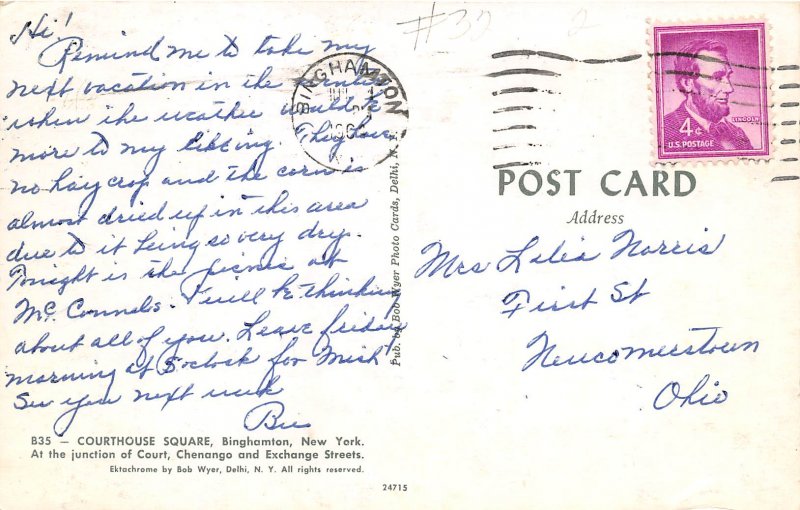 Hi!
Remind me to take my
next vacation in the winter
when the weather would be
more to my liking. They have
no hay crop and the corn is
almost dried up in this area
due to it being so very dry.
Tonight is the picnic at
McConnels. I will be thinking
about all of you. Leave friday
morning at 5 oclock for Mich
See you next week
B35 — COURTHOUSE SQUARE, Binghamton, New York.
At the junction of Court, Chenango and Exchange Streets.
Ektachrome by Bob Wyer, Delhi, N. Y. All rights reserved.
24715
Pub. by Bob Wyer Photo Cards, Delhi, N. Y.
#32
BINGHAMTON
LINCOLN
4¢
U.S. POSTAGE
POST CARD
Address
Mrs Lelia Norris
First St
Newcomerstown
Ohio